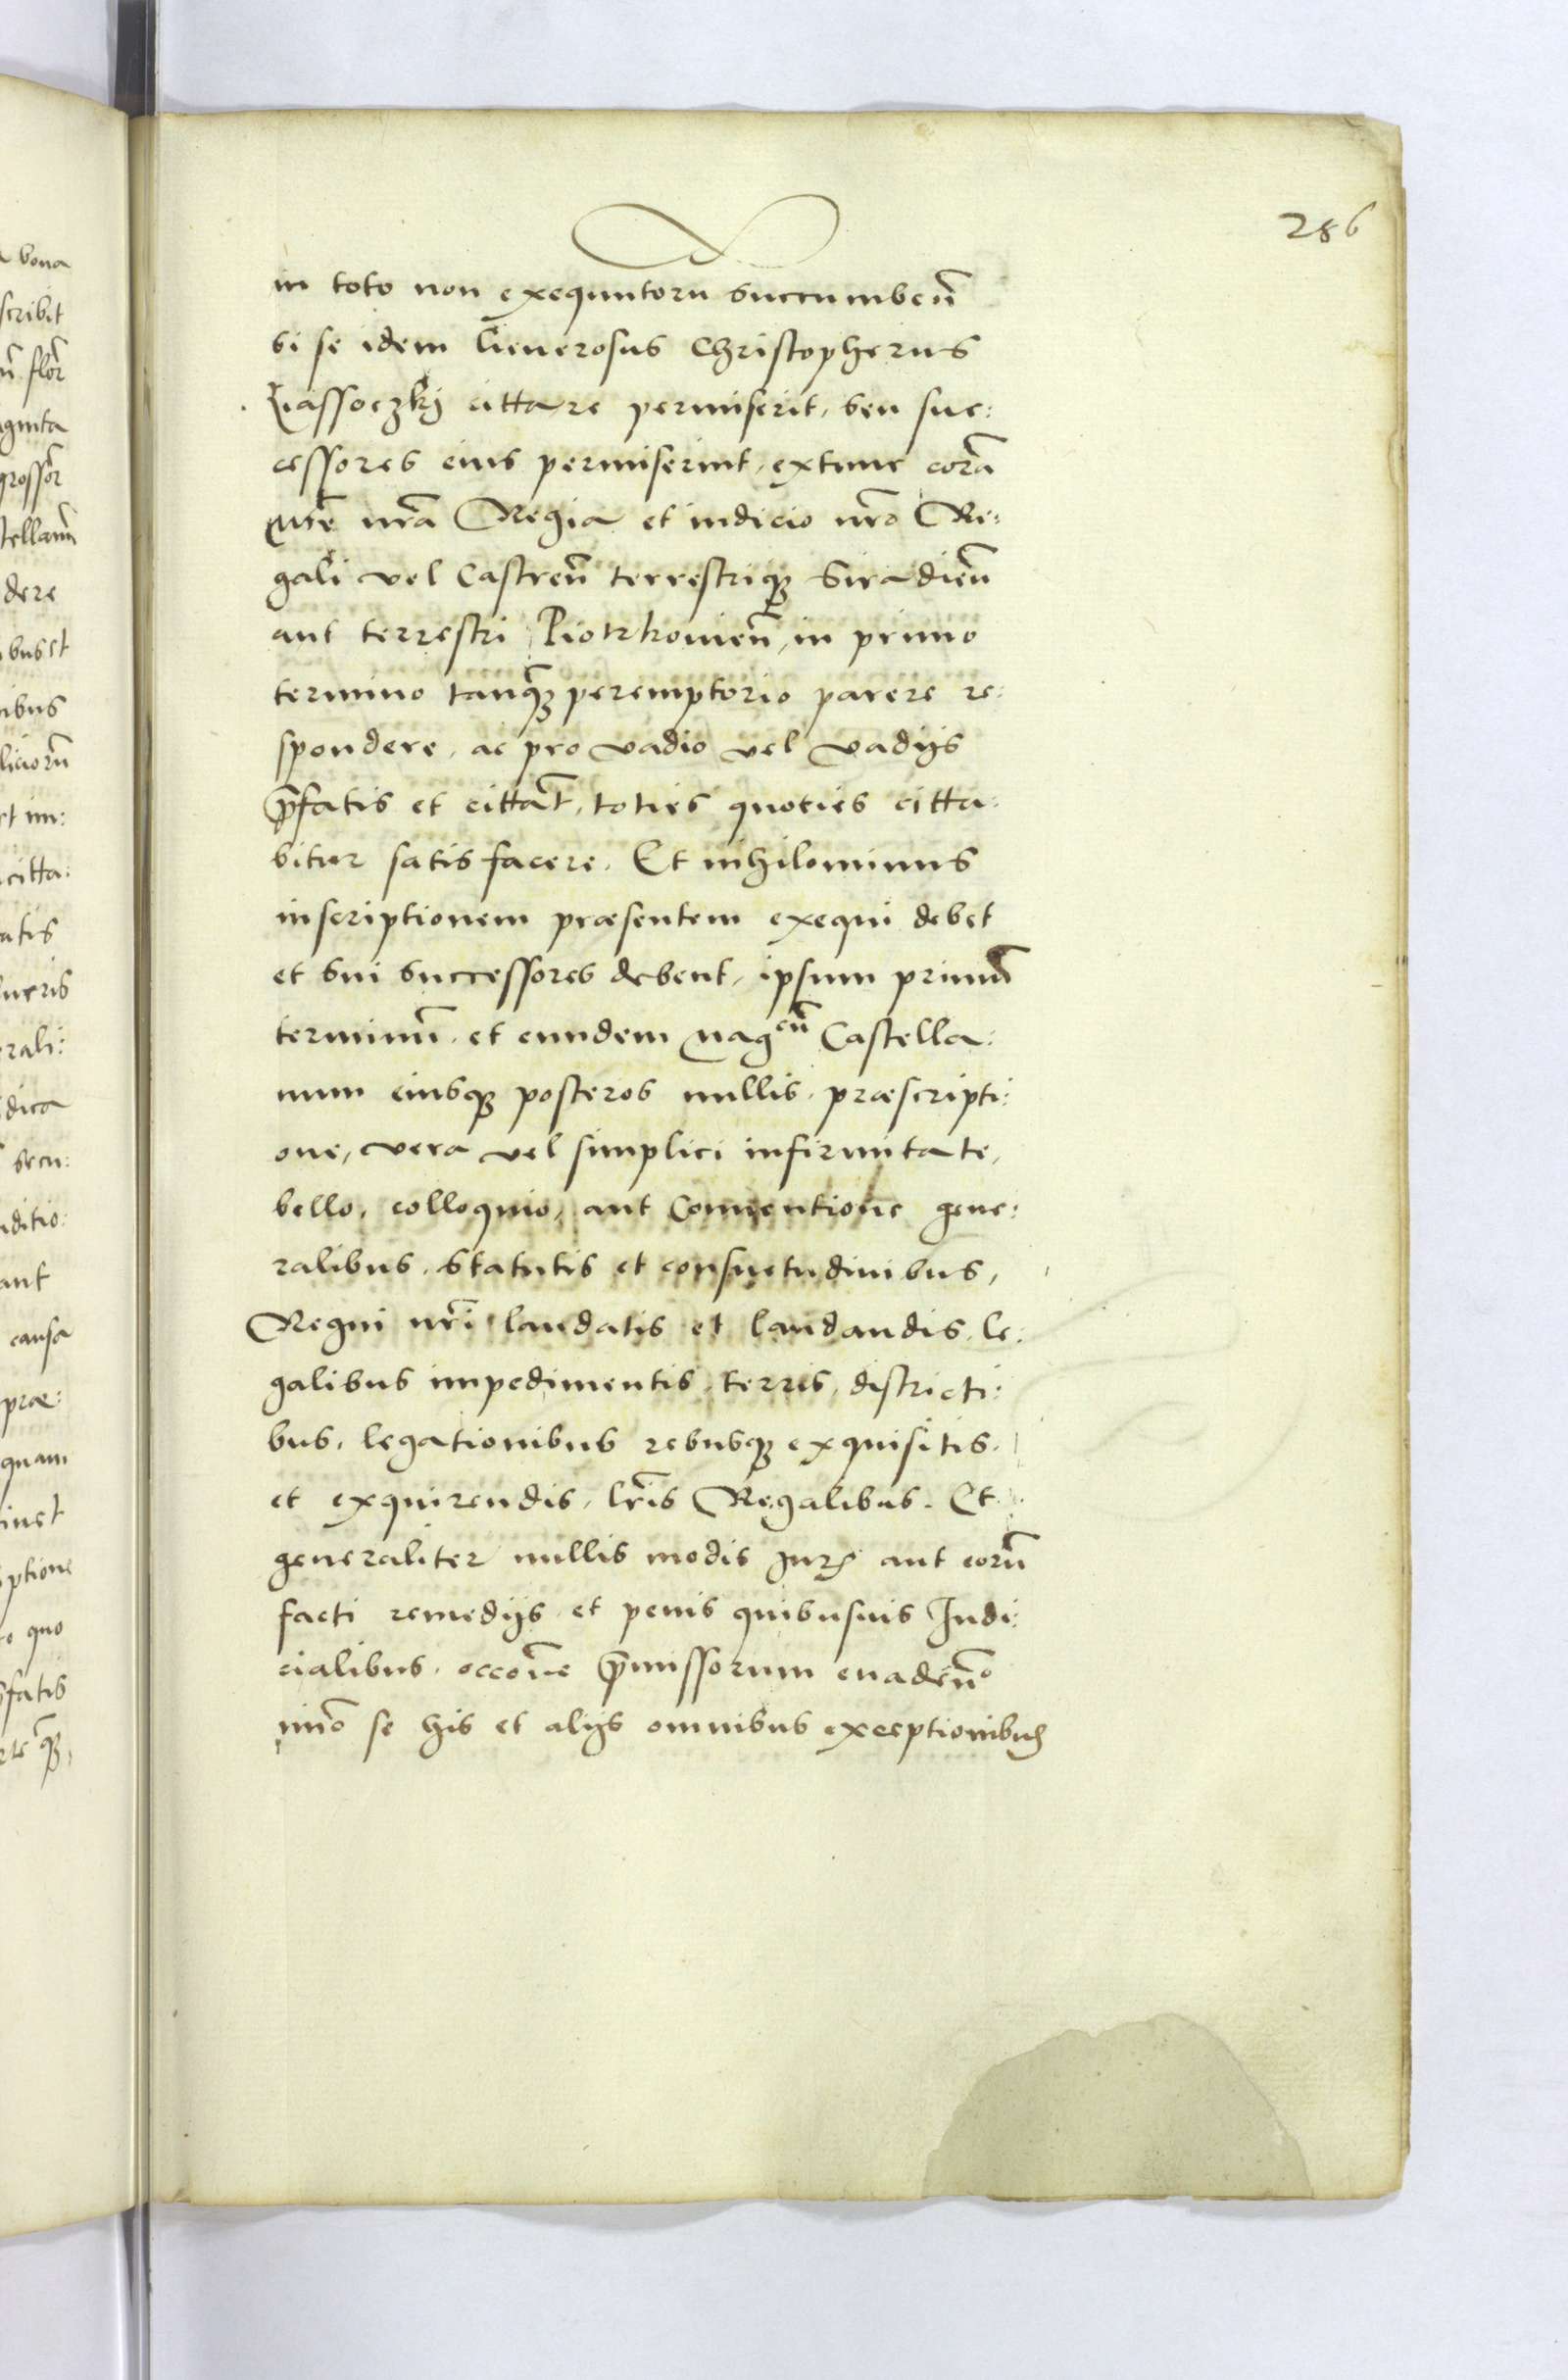 286
in toto non exequutoru succumbeñ
si se idem Generosus Christopherus
Lassoczkj cittare permiserit, seu suc:
cessores eius permiserint, extunc corã
Mte nrã Regia et iudicio nrõ Re:
gali vel Castreñ terrestriq3 Siradieñ
aut terrestri Piotrkovieñ, in primo
termino tanq̃3 peremptorio parere re:
spondere, ac pro vadio vel vadijs
p̃fatis et cittañt, toties quoties citta:
bitur satisfacere. Et nihilominus
inscriptionem præsentem exequi debet
et sui successores debent, ipsum primũ
terminũ, et eundem Mag^cũ Castella:
num eiusq3 posteros nullis, præscripti:
one, vera vel simplici infirmitate,
bello, colloquio, aut Conventione gene:
ralibus, statutis et consuetudinibus,
Regni nrĩ laudatis et laudandis, le:
galibus impedimentis, terris, districti:
bus, legationibus rebusq3 exquisitis,
et exquirendis, lr̃is Regalibus. Et
generaliter nullis modis Juris aut eorũ
facti remedijs et penis quibusvis Iudi:
cialibus, occoñe p̃missorum evadeño
imõ se his et alijs omnibus exceptionibus
a bona
scribit
ñ flor̃
ginta
grossor̃
tellanũ
dere
bus et
ibus
liciorũ
et im:
citta:
atis
ueris
erali:
dica
secu:
ditio:
aut
causa
præ:
quam
inet
ptione
o quo
p̃fatis